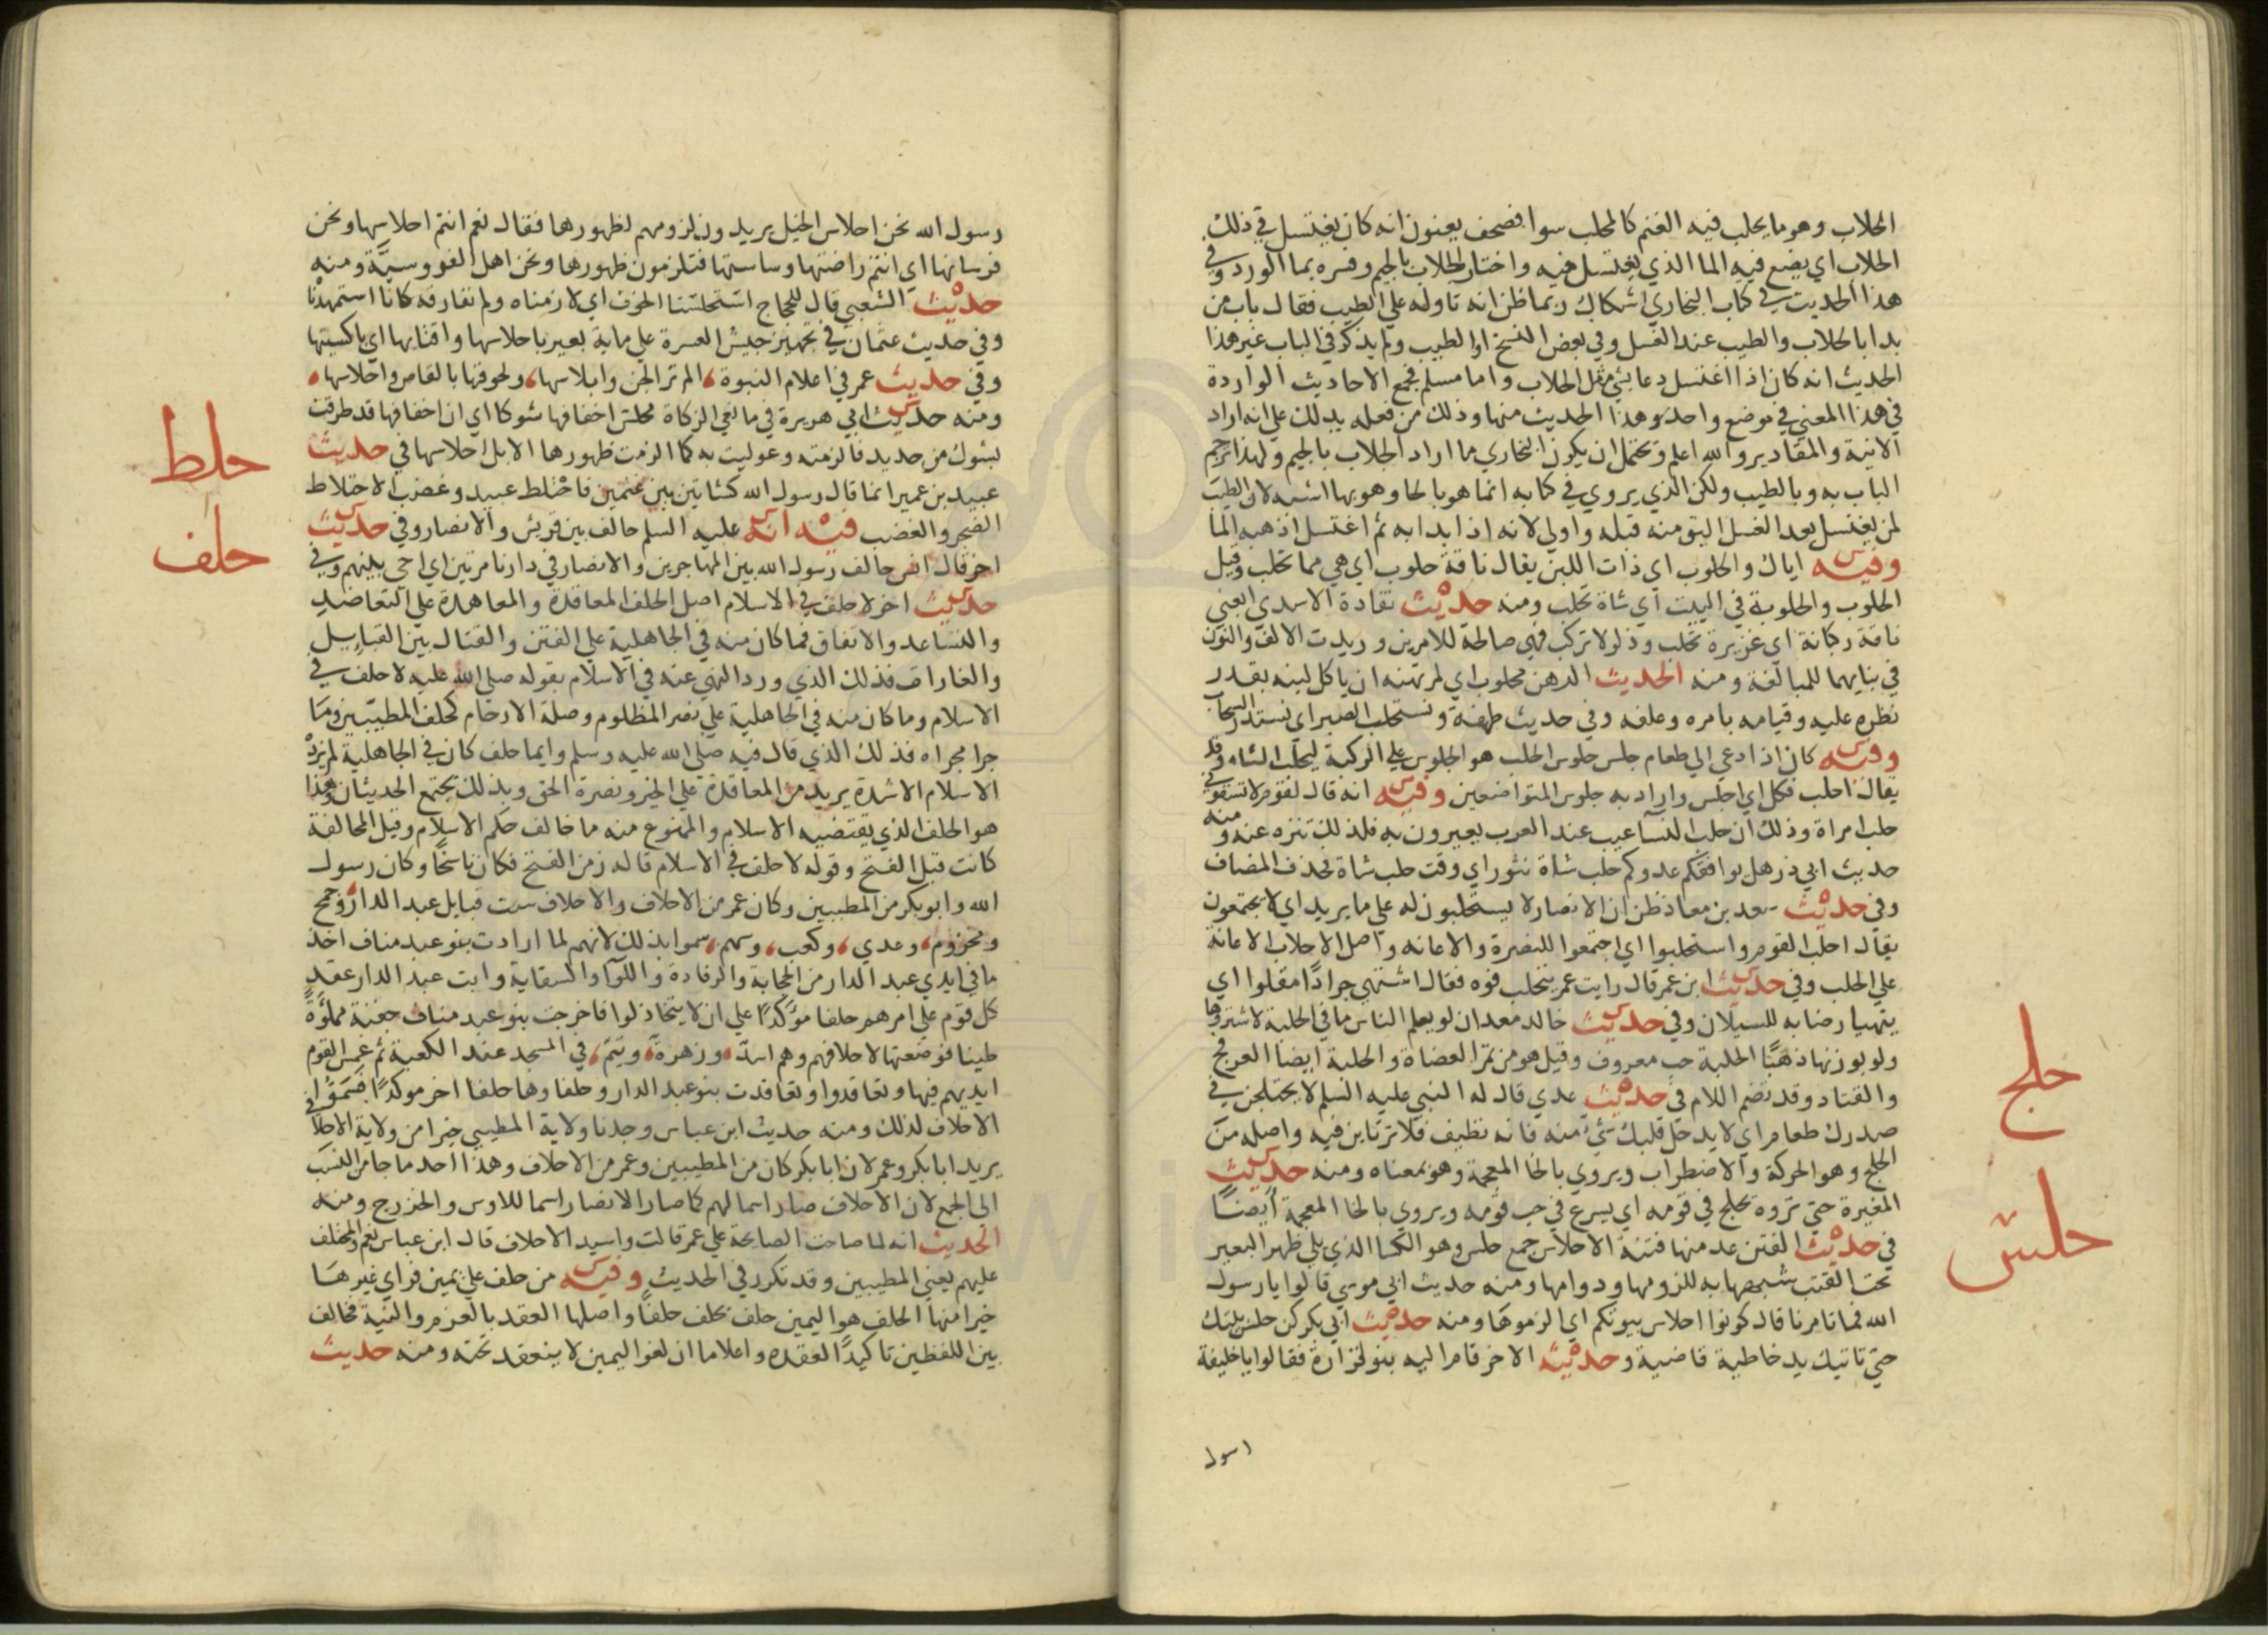 الحلاب وهو ما يحلب فيه الغنم كالمحلب سوا فصحف يعنون انه كان يغتسل في ذلك
الحلاب اي يضع فيه الما الذي يغتسل فيه واختار الجلاب بالجيم وفسره بما الورد وفي
هذا الحديث في كتاب البخاري اشكال ربما ظن انه تاوله علي الطيب فقال باب من
بدا بالحلاب والطيب عند الغسل وفي بعض النسخ او الطيب ولم يذكر في الباب غير هذا
الحديث انه كان اذا اغتسل دعا بشي مثل الحلاب واما مسلم فجمع الاحاديث الواردة
في هذا المعني في موضع واحد وهذا الحديث منها وذلك من فعله يدلك علي انه اراد
الانية والمقادير والله اعلم ويحتمل ان يكون البخاري ما اراد الجلاب بالجيم ولهذا ترجم
الباب به وبالطيب ولكن الذي يروي في كتابه انما هو بالحا وهو بها اشبه لان الطيب
لمن يغتسل بعد الغسل اليق منه قبله واولي لانه اذا بدا به ثم اغتسل اذهبه الما
وفيه اياك والحلوب اي ذات اللبن يقال ناقة حلوب اي هي مما تحلب وقيل
الحلوب والحلوبة في البيت اي شاة تحلب ومنه حديث نقادة الاسدي ابغني
ناقة ركبانة اي غزيرة تحلب وذلولا تركب فهي صالحة للامرين وزيدت الالف والنون
في بنايهما للمبالغة ومنه الحديث الرهن محلوب اي لمرتهنه ان ياكل لبنه بقدر
نظره عليه وقيامه بامره وعلفه وفي حديث طهفة ونستحلب الصبير اي نستدر السحاب
وفيه كان اذا دعي الي طعام جلس جلوس الحلب هو الجلوس علي الركبة ليحلب الشاه وقد
يقال احلب فكل اي اجلس واراد به جلوس المتواضعين وفيه انه قال لقوم لا تسقوني
حلب امراة وذلك ان حلب النسا عيب عند العرب يعيرون به فلذلك تنزه عنه ومنه
حديث ابي ذر هل يوافقكم عدوكم حلب شاة نثور اي وقت حلب شاة فحذف المضاف
وفي حديث سعد بن معاذ ظن ان الانصار لا يستحلبون له علي ما يريد اي لا يجتمعون
يقال احلب القوم واستحلبوا اي اجتمعوا للنصرة والاعانه واصل الاحلاب الاعانة
علي الحلب وفي حديث ابن عمر قال رايت عمر يتحلب فوه فقال اشتهي جرادا مقلوا اي
يتهيا رضابه للسيلان وفي حديث خالد معدان لو يعلم الناس ما في الحلبة لاشتروها
ولو بوزنها ذهبا الحلبة حب معروف وقيل هو من ثمر العضاة والحلبة ايضا العرفج
والقتاد وقد تضم اللام في حديث عدي قال له النبي عليه السلم لا يختلجن في
صدرك طعام اي لا يدخل قلبك شيء منه فانه نظيف فلا ترتابن فيه واصله من
الحلج وهو الحركة والاضطراب ويروي بالخا المعجمة وهو بمعناه ومنه حديث
المغيرة حتي تروه يحلج في قومه اي يسرع في حب قومه ويروي بالخا المعجمة ايضا
في حديث الفتن عد منها فتنة الاحلاس جمع حلس وهو الكسا الذي يلي ظهر البعير
تحت القتب شبهها به للزومها ودوامها ومنه حديث ابي موسي قالوا يا رسول
الله فما تامرنا قال كونوا احلاس بيوتكم اي الزموها ومنه حديث ابي بكر كن حلس بيتك
حتي تاتيك يد خاطية قاضية وحديثه الاخر قام اليه بنو فزارة فقالوا يا خليفة
رسول
حلج
حلس
رسول الله نحن احلاس الخيل يريدون لزومهم لظهورها فقال نعم انتم احلاسها ونحن
فرسانها اي انتم راضتها وساستها فتلزمون ظهورها ونحن اهل الفروسية ومنه
حديث الشعبي قال للحجاج استحلسنا الخوف اي لازمناه ولم نفارقه كانا استمهدنا
وفي حديث عثمان في تجهيز جيش العسرة علي ماية بعير باحلاسها واقتابها اي باكسيتها
وفي حديث عمر في اعلام النبوة الم تر الجن وابلاسها ولحوقها بالقلاص واحلاسها
ومنه حديث ابي هريرة في مانعي الزكاة محلس اخفافها شوكا اي ان اخفافها قد طرقت
بشوك من حديد فالزمته وعوليت به كما الزمت ظهورها الابل احلاسها في حديث
عبيد بن عمير انما قال رسول الله كشاتين بين غنمين فاختلط عبيد وغضب الاحتلاط
الضجر والغضب فيه انه عليه السلم حالف بين قريش والانصار وفي حديث
اخر قال انس حالف رسول الله بين المهاجرين والانصار في دارنا مرتين اي اخي بينهم وفي
حديث اخر لا حلف في الاسلام اصل الحلف المعاقدة والمعاهدة علي التعاضد
والتساعد والاتفاق فما كان منه في الجاهلية علي الفتن والقتال بين القبايل
والغارات فذلك الذي ورد النهي عنه في الاسلام بقوله صلي الله عليه لا حلف في
الاسلام وما كان منه في الجاهلية علي نصر المظلوم وصلة الارحام كحلف المطيبين وما
جرا مجراه فذلك الذي قال فيه صلي الله عليه وسلم وايما حلف كان في الجاهلية لم يزده
الاسلام الا شدة يريد من المعاقدة علي الخير ونصرة الحق وبذلك يجتمع الحديثان وهذا
هو الحلف الذي يقتضيه الاسلام والممنوع منه ما خالف حكم الاسلام وقيل المحالفة
كانت قبل الفتح وقوله لا حلف في الاسلام قاله زمن الفتح فكان ناسخا وكان رسول
الله وابو بكر من المطيبين وكان عمر من الاحلاف والاحلاف ست قبايل عبد الدار وجمح
ومخزوم وعدي وكعب وسهم سموا بذلك لانهم لما ارادت بنو عبد مناف اخذ
ما في ايدي عبد الدار من الحجابة والرفادة واللوا والسقاية وابت عبد الدار عقد
كل قوم علي امرهم حلفا مؤكدا علي ان لا يتخاذلوا فاخرجت بنو عبد مناف جفنة مملوة
طيبا فوضعتها لاحلافهم وهم اسد وزهرة وتيم في المسجد عند الكعبة ثم غمس القوم
ايديهم فيها وتعاقدوا وتعاقدت بنو عبد الدار وحلفاوها حلفا اخر موكدا فسموا
الاحلاف لذلك ومنه حديث ابن عباس وجدنا ولاية المطيبي خيرا من ولاية الاحلافي
يريد ابا بكر وعمر لان ابا بكر كان من المطيبين وعمر من الاحلاف وهذا احد ما جا من النسب
الي الجمع لان الاحلاف صار اسما لهم كما صار الانصار اسما للاوس والخزرج ومنه
الحديث انه لما صاحت الصايحة علي عمر قالت واسيد الاحلاف قال ابن عباس نعم والمحتلف
عليهم يعني المطيبين وقد تكرر في الحديث وفيه من حلف علي يمين فراي غيرها
خيرا منها الحلف هو اليمين حلف يحلف حلفا واصلها العقد بالعزم والنية فخالف
بين اللفظين تاكيدا لعقده واعلاما ان لغو اليمين لا ينعقد تحته ومنه حديث
حلط
حلف